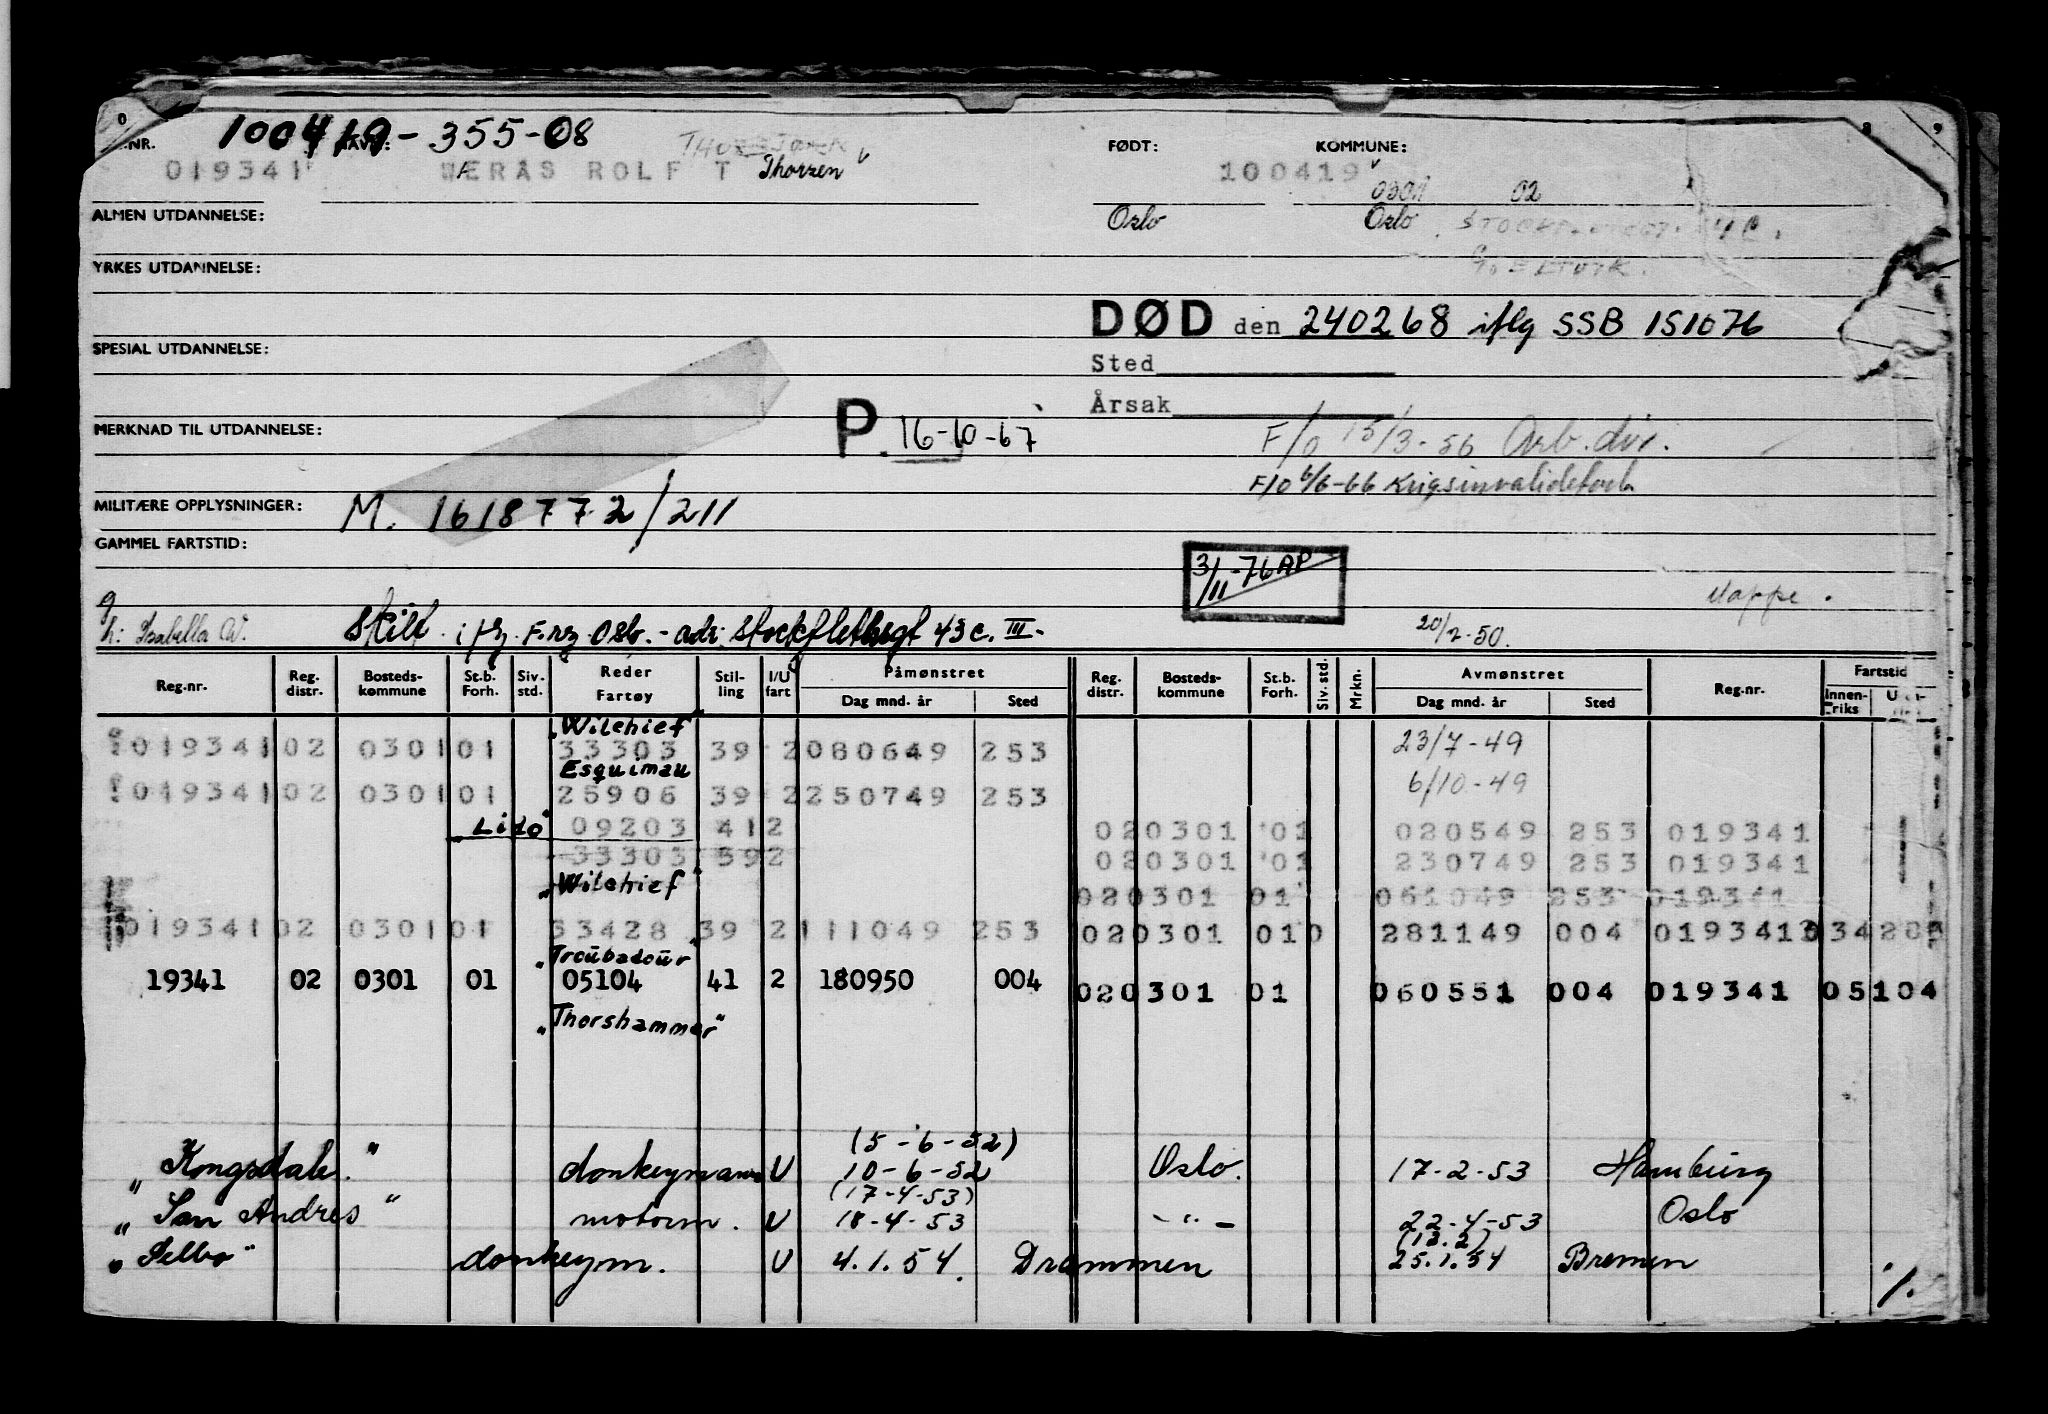 100419-355-08
NR. NAVN: FØDT: KOMMUNE:
019341 WÆRÅS ROLF T Thorzen 100419
0301 02
ALMEN UTDANNELSE: Oslo Oslo
YRKES UTDANNELSE:
DØD den 240268 iflg SSB 151076
SPESIAL UTDANNELSE:
Sted
Årsak
MERKNAD TIL UTDANNELSE: P. 16-10-67 F/o 15/3-56 Arb.dir.
F/o 6/6-66 Krigsinvalideforb
MILITÆRE OPPLYSNINGER: M. 1618772/211
GAMMEL FARTSTID:
3/11-76 AP
Mappe.
h: Isabella W. Skilt. iflg. F.reg Oslo.- adr: Stockflethsgt 43c. III. 20/2-50.
Reg.nr. Reg. distr. Bosteds-kommune St.b. Forh. Siv. std. Reder Fartøy Stilling I/U fart Påmønstret Dag mnd. år Sted Reg. distr. Bosteds-kommune St.b. Forh. Siv. std. Mrkn. Avmønstret Dag mnd. år Sted Reg.nr. Fartstid Innenriks
"Wilchief"
019341 02 0301 01 33303 39 2 080649 253 23/7-49
Esquimau
019341 02 0301 01 25906 39 2 250749 253 6/10-49
"Lido" 09203 41 2 02 0301 01 020549 253 019341
33303 39 2 02 0301 01 230749 253 019341
"Wilchief" 02 0301 01 061049 253 019341
019341 02 0301 01 33428 39 2 111049 253 02 0301 01 0 281149 004 019341
"Troubadour"
19341 02 0301 01 05104 41 2 180950 004 02 0301 01 060551 004 019341 05104
"Thorshammer"
(5-6-52)
"Kongsdale" donkeymann U 10-6-52 Oslo. 17-2-53 Hamburg
(17-4-53)
"San Andres" motorm. U 18-4-53 -"- 22-4-53 Oslo
(13.2)
"Selbo" donkeym. U 4.1.54. Drammen 25.1.54 Bremen